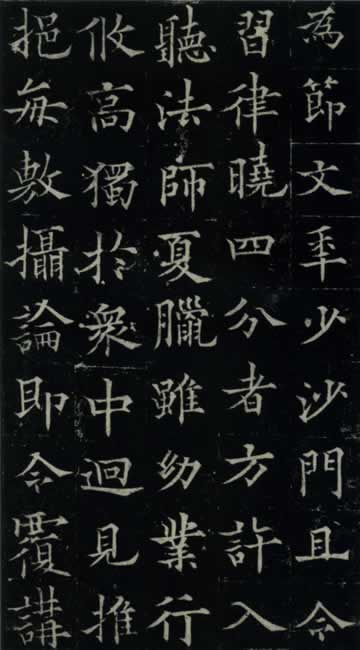 為節文年少沙門且令
習律曉四分者方許入
聽法師夏臘雖幼業行
攸高獨於衆中迥見推
挹每敷攝論即令覆講